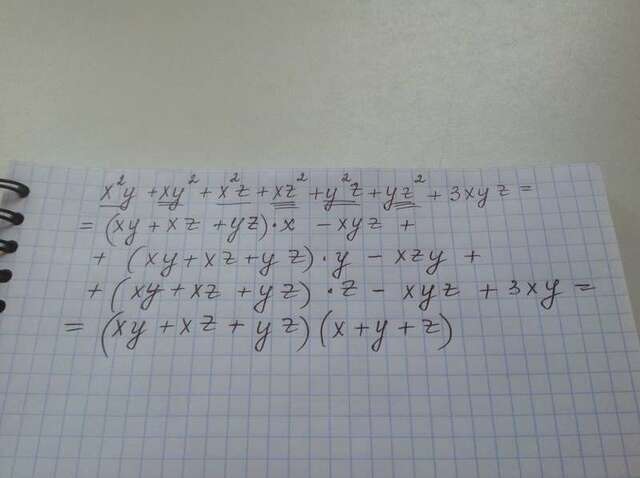 x²y + xy² + x²z + xz² + y²z + yz² + 3xyz =
= (xy + xz + yz)·x - xyz +
+ (xy + xz + yz)·y - xzy +
+ (xy + xz + yz)·z - xyz + 3xy =
= (xy + xz + yz)(x + y + z)